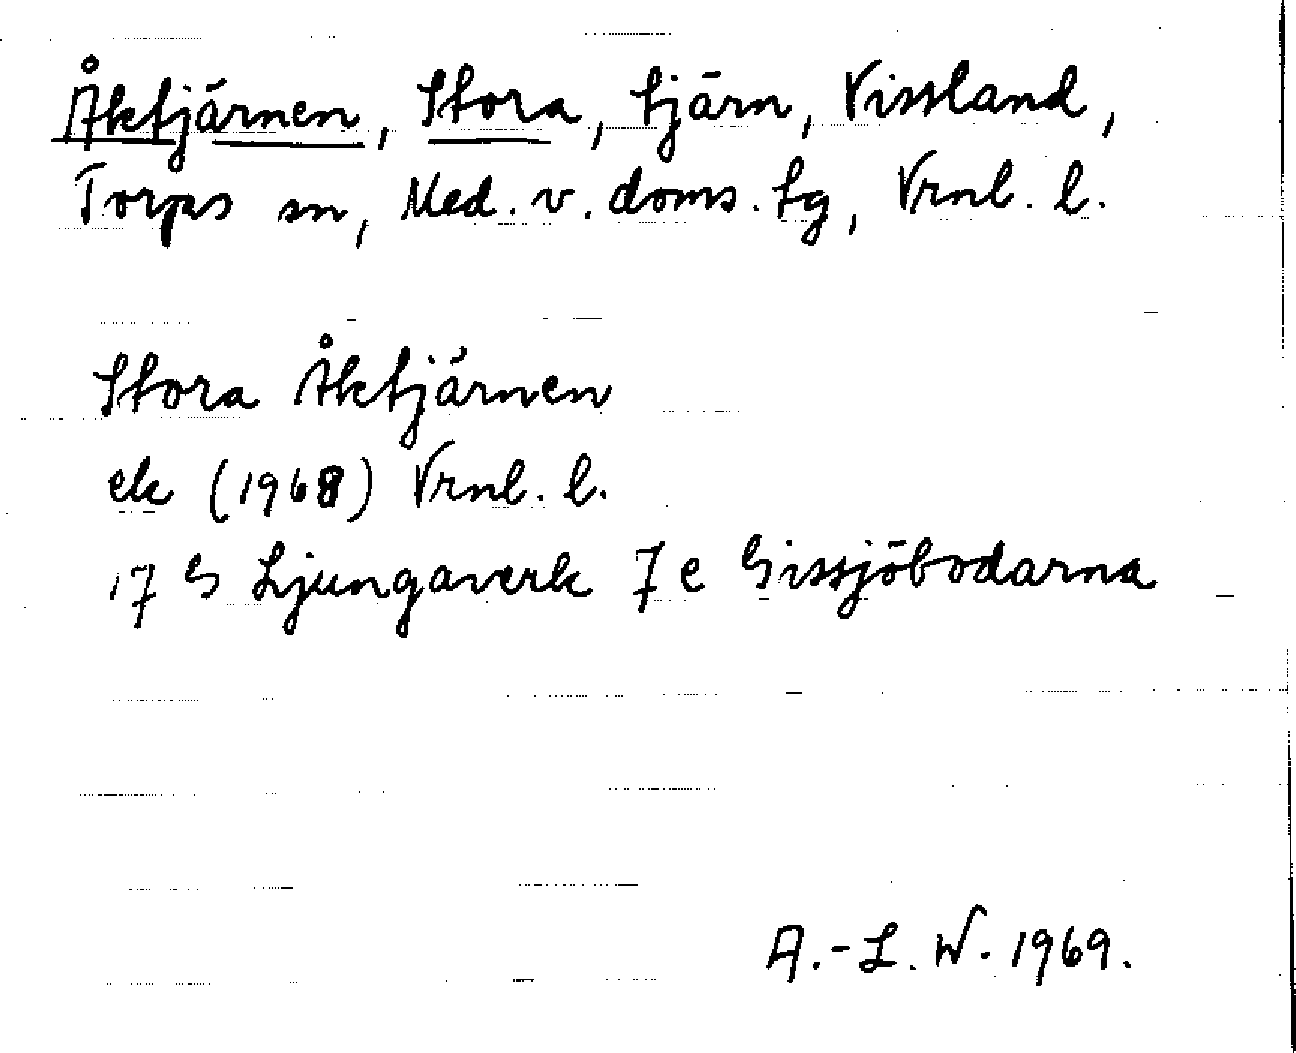 Åktjärnen, Stora, tjärn, Vissland,
Torps sn, Med. v. doms. tg, Vrnl. l.
Stora Åktjärnen
ek (1968) Vrnl. l.
17 G Ljungaverk 7 e Gissjöbodarna
A.-L. W. 1969.